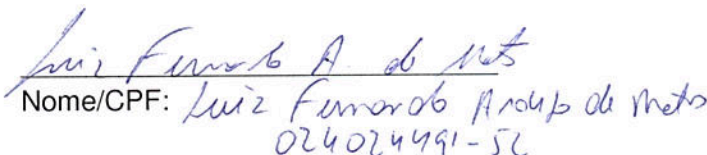 Luiz Fernando A. de Mato
Nome/CPF: Luiz Fernando Araujo de Mato
024024491-52